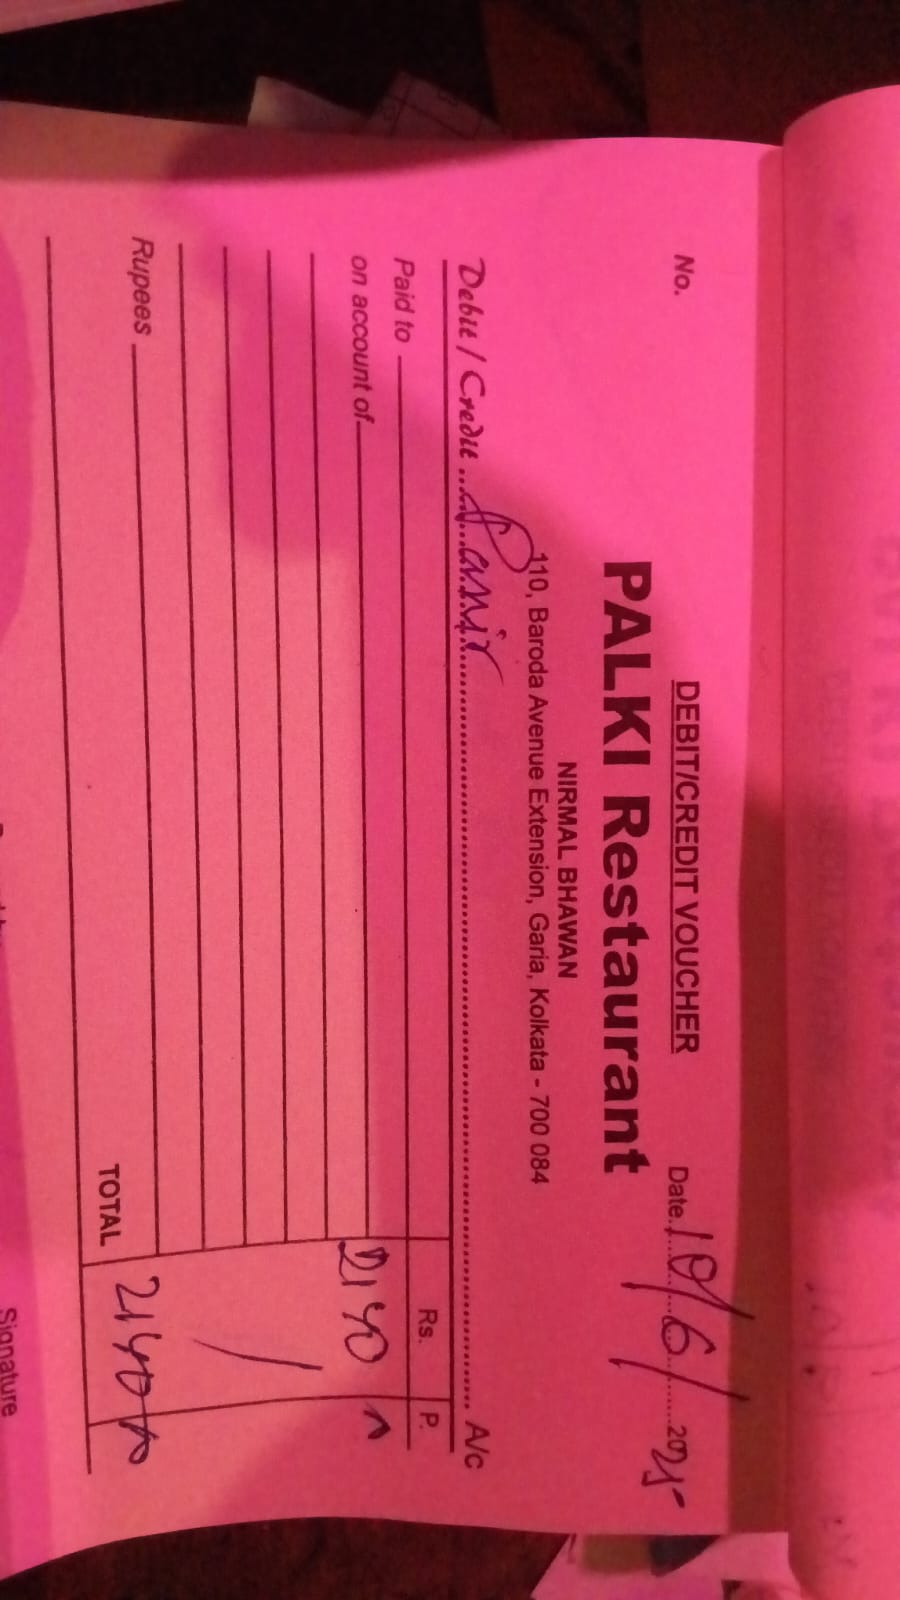 DEBIT/CREDIT VOUCHER
No. Date 10/6/2025
PALKI Restaurant
NIRMAL BHAWAN
110, Baroda Avenue Extension, Garia, Kolkata - 700 084
Debit / Credit ... A/c
Rs. P.
Paid to
on account of 2140
Rupees
TOTAL 2140
Signature